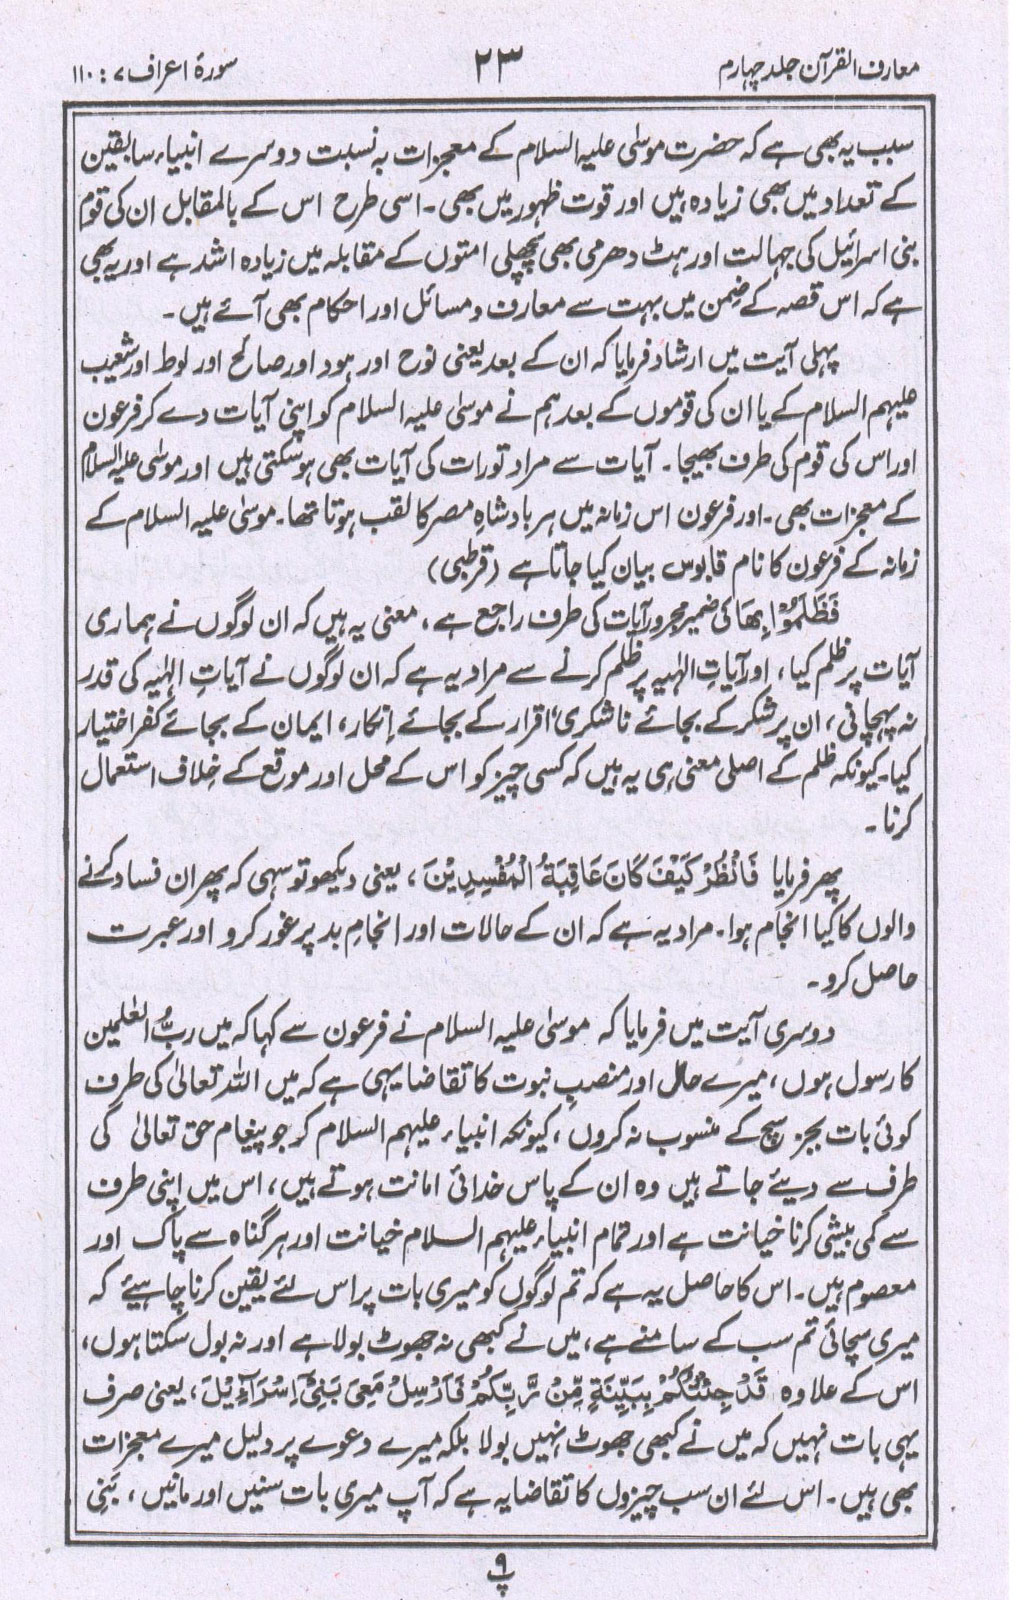 معارف القرآن جلد چہارم
۲۳
سورۂ اعراف ۷ : ۱۱۰
سبب یہ بھی ہے کہ حضرت موسٰی علیہ السلام کے معجزات بہ نسبت دوسرے انبیاء سابقین
کے تعداد میں بھی زیادہ ہیں اور قوت ظہور میں بھی ۔ اسی طرح اس کے بالمقابل ان کی قوم
بنی اسرائیل کی جہالت اور ہٹ دھرمی بھی پچھلی امتوں کے مقابلہ میں زیادہ اشد ہے اور یہ بھی
ہے کہ اس قصہ کے ضمن میں بہت سے معارف و مسائل اور احکام بھی آئے ہیں ۔
پہلی آیت میں ارشاد فرمایا کہ ان کے بعد یعنی نوح اور ہود اور صالح اور لوط اور شعیب
علیہم السلام کے یا ان کی قوموں کے بعد ہم نے موسیٰ علیہ السلام کو اپنی آیات دے کر فرعون
اور اس کی قوم کی طرف بھیجا ۔ آیات سے مراد تورات کی آیات بھی ہو سکتی ہیں اور موسٰی علیہ السلام
کے معجزات بھی ۔ اور فرعون اس زمانہ میں ہر بادشاہِ مصر کا لقب ہوتا تھا ۔ موسیٰ علیہ السلام کے
زمانہ کے فرعون کا نام قابوس بیان کیا جاتا ہے (قرطبی)
فَظَلَمُوْا بِھَا کی ضمیر مجرور آیات کی طرف راجع ہے ، معنی یہ ہیں کہ ان لوگوں نے ہماری
آیات پر ظلم کیا ، اور آیاتِ الٰہیہ پر ظلم کرنے سے مراد یہ ہے کہ ان لوگوں نے آیاتِ الٰہیہ کی قدر
نہ پہچانی ، ان پر شکر کے بجائے ناشکری ، اقرار کے بجائے اِنکار ، ایمان کے بجائے کفر اختیار
کیا ۔ کیونکہ ظلم کے اصلی معنی ہی یہ ہیں کہ کسی چیز کو اس کے محل اور موقع کے خِلاف استعمال
کرنا ۔
پھر فرمایا فَانْظُرْ کَیْفَ کَانَ عَاقِبَۃُ الْمُفْسِدِیْنَ ، یعنی دیکھو تو سہی کہ پھر ان فساد کرنے
والوں کا کیا انجام ہوا ۔ مراد یہ ہے کہ ان کے حالات اور انجامِ بد پر غور کرو اور عبرت
حاصل کرو ۔
دوسری آیت میں فرمایا کہ موسیٰ علیہ السلام نے فرعون سے کہا کہ میں ربُّ العٰلمین
کا رسول ہوں ، میرے حال اور منصبِ نبوت کا تقاضا یہی ہے کہ میں اللہ تعالیٰ کی طرف
کوئی بات بجز سچ کے منسوب نہ کروں ، کیونکہ انبیاء علیہم السلام کو جو پیغام حق تعالیٰ کی
طرف سے دیئے جاتے ہیں وہ ان کے پاس خدائی امانت ہوتے ہیں ، اس میں اپنی طرف
سے کمی بیشی کرنا خیانت ہے اور تمام انبیاء علیہم السلام خیانت اور ہر گناہ سے پاک اور
معصوم ہیں ۔ اس کا حاصل یہ ہے کہ تم لوگوں کو میری بات پر اس لئے یقین کرنا چاہیئے کہ
میری سچائی تم سب کے سامنے ہے ، میں نے کبھی نہ جھوٹ بولا ہے اور نہ بول سکتا ہوں ،
اس کے علاوہ قَدْ جِئْتُکُمْ بِبَیِّنَۃٍ مِّنْ رَّبِّکُمْ فَاَرْسِلْ مَعِیَ بَنِیْٓ اِسْرَآءِیْلَ ، یعنی صرف
یہی بات نہیں کہ میں نے کبھی جھوٹ نہیں بولا بلکہ میرے دعوے پر دلیل میرے معجزات
بھی ہیں ۔ اس لئے ان سب چیزوں کا تقاضا یہ ہے کہ آپ میری بات سنیں اور مانیں ، بَنِی
۹
پ